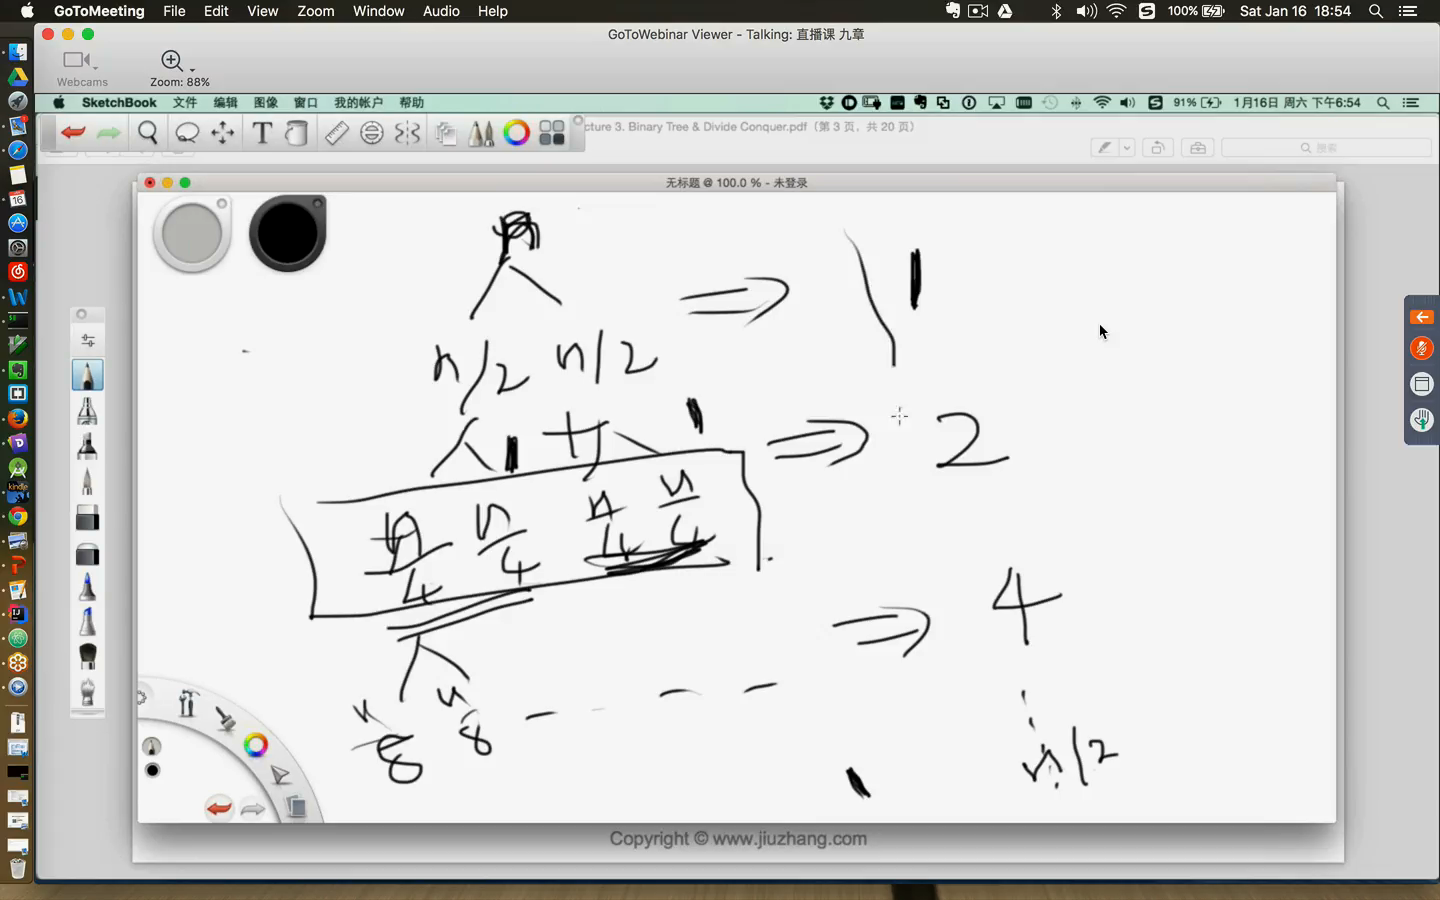 GoToMeeting File Edit View Zoom Window Audio Help 100% Sat Jan 16 18:54
GoToWebinar Viewer - Talking: 直播课 九章
Webcams
Zoom: 88%
SketchBook 文件 编辑 图像 窗口 我的帐户 帮助 91% 1月16日 周六 下午6:54
cture 3. Binary Tree & Divide Conquer.pdf (第 3 页，共 20 页)
搜索
无标题 @ 100.0 % - 未登录
n
1
n/2 n/2
2
n/4 n/4 n/4 n/4
4
n/8 n/8
n/2
Copyright © www.jiuzhang.com